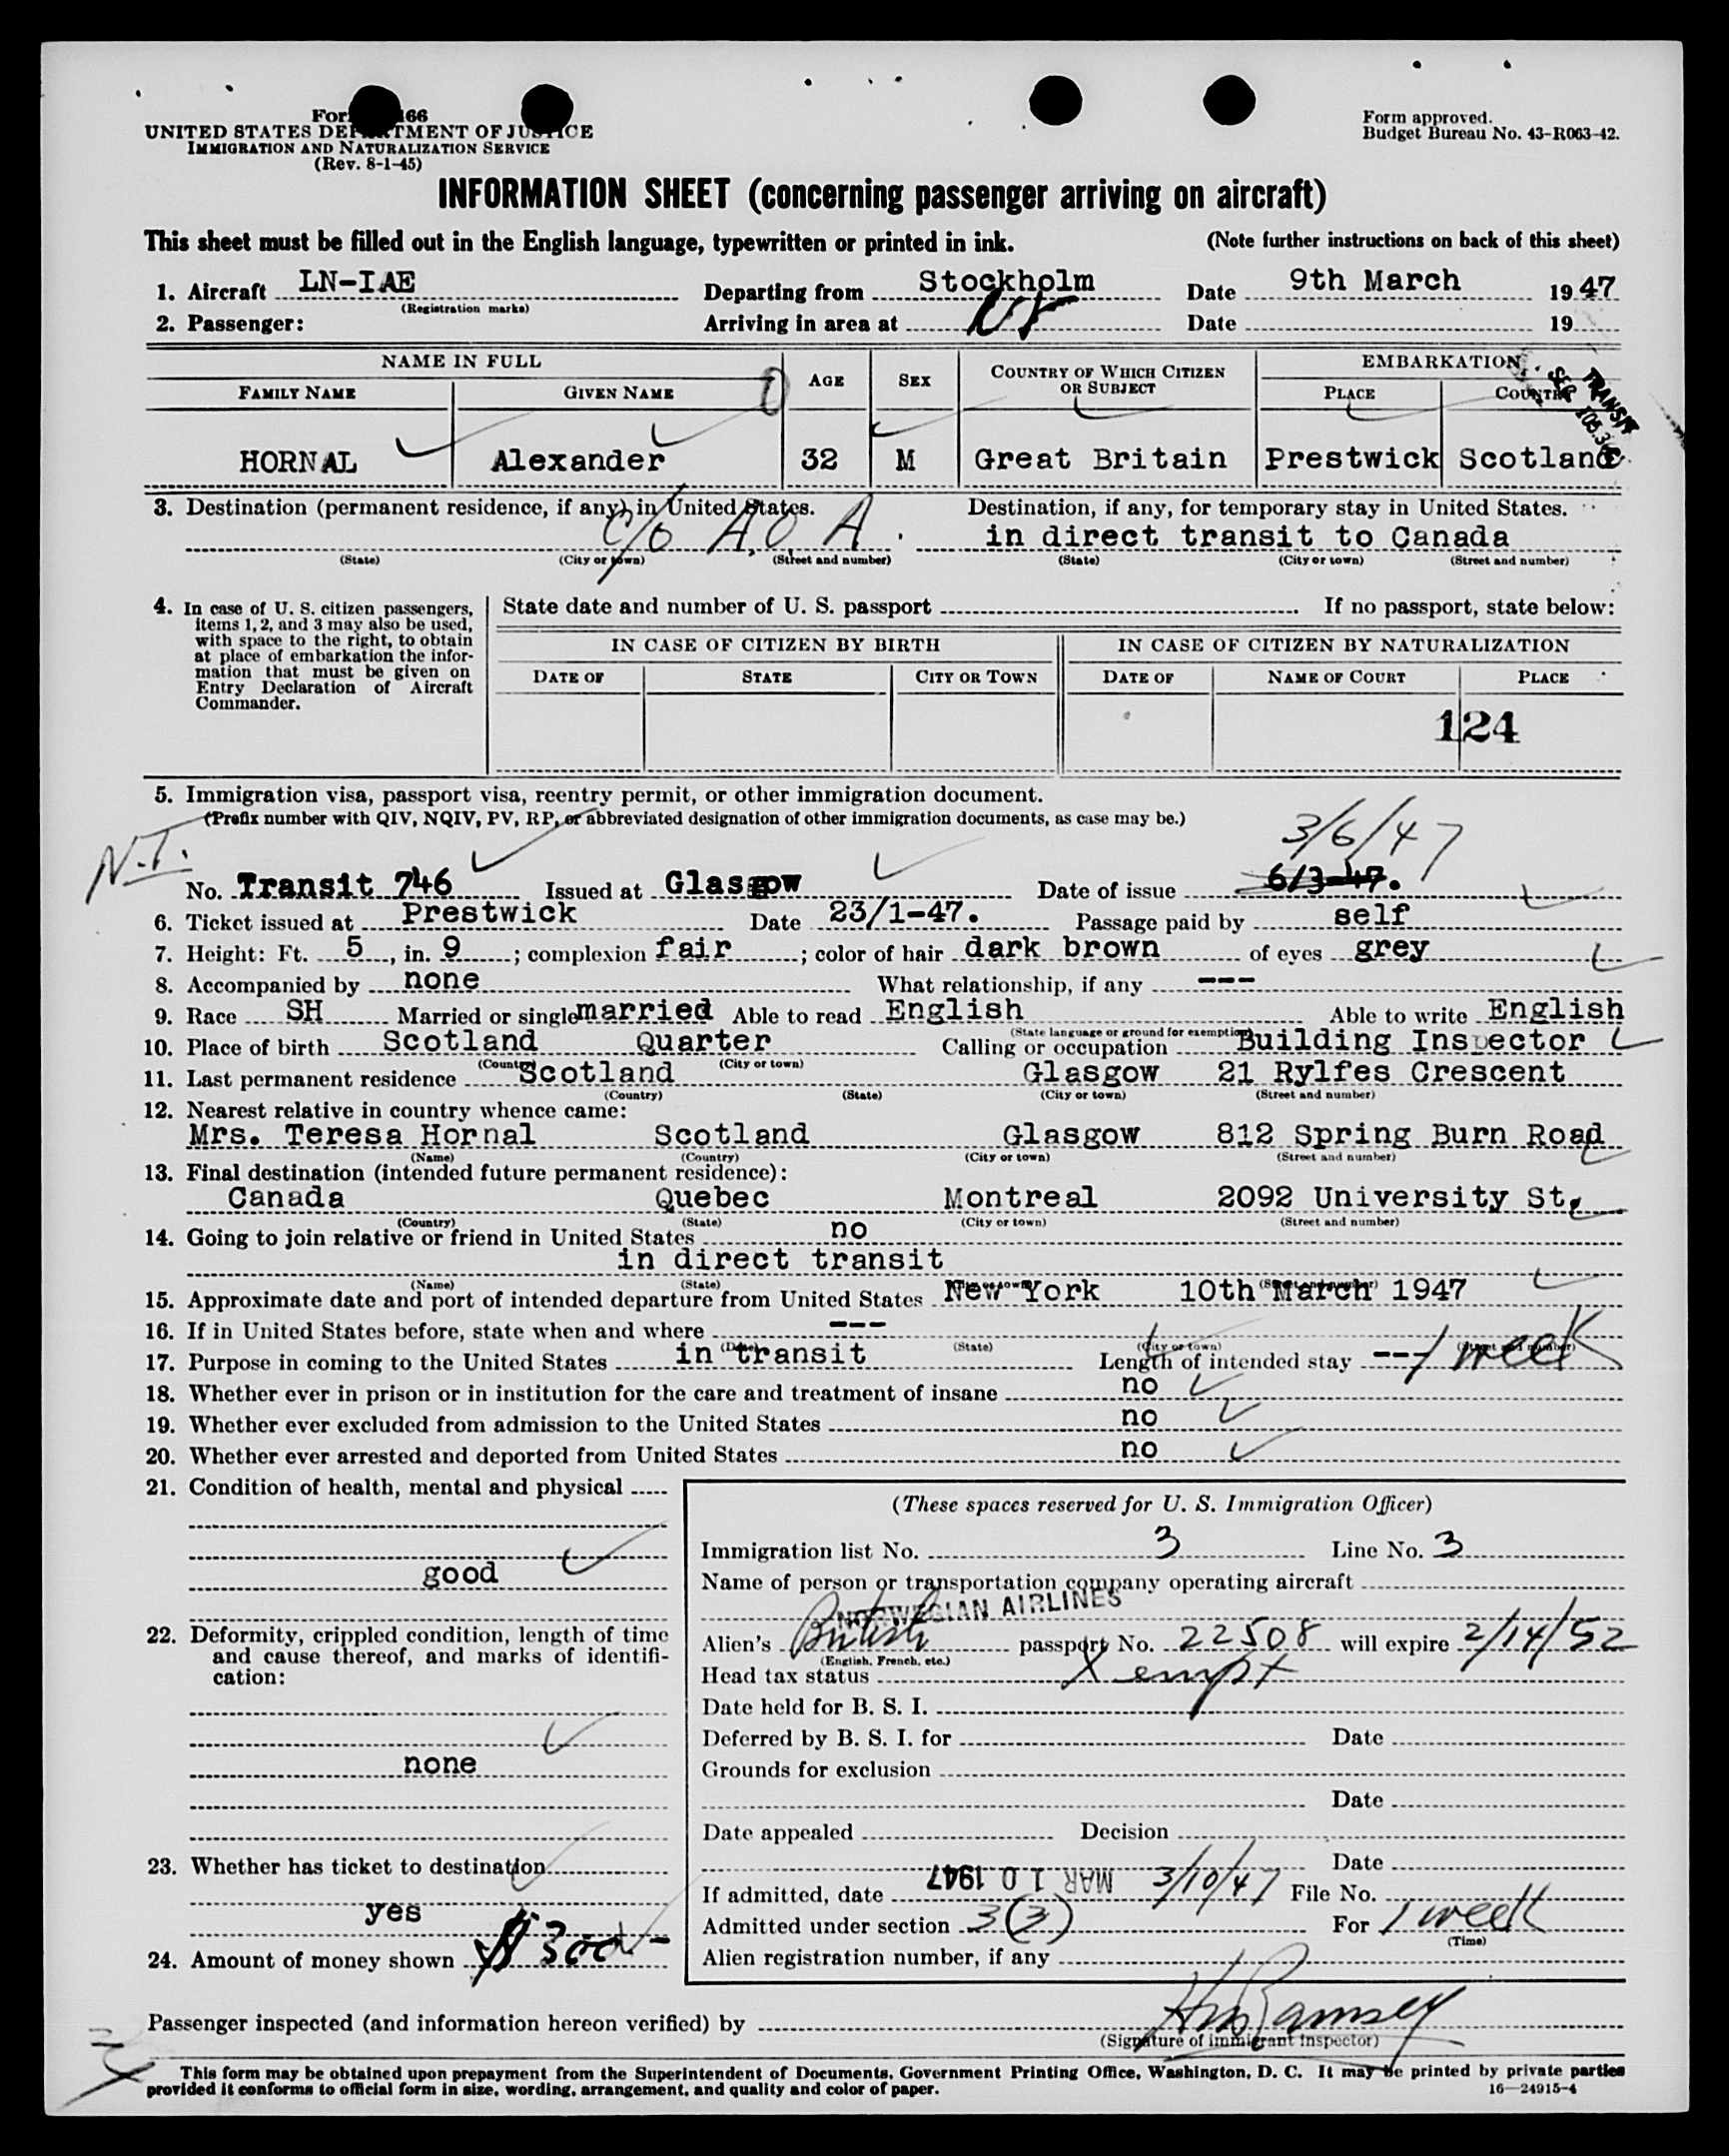 UNITED STATES DEPARTMENT OF JUSTICE
IMMIGRATION AND NATURALIZATION SERVICE
(Rev. 8-1-45)
Form approved.
Budget Bureau No. 43-R063-42.
INFORMATION SHEET (concerning passenger arriving on aircraft)
This sheet must be filled out in the English language, typewritten or printed in ink. (Note further instructions on back of this sheet)
1. Aircraft LN-IAE Departing from Stockholm Date 9th March 1947
(Registration marks)
2. Passenger: Arriving in area at Date 19
NAME IN FULL AGE SEX COUNTRY OF WHICH CITIZEN OR SUBJECT EMBARKATION
FAMILY NAME GIVEN NAME PLACE COUNTRY
TRANSIT
HORNAL Alexander 32 M Great Britain Prestwick Scotland
3. Destination (permanent residence, if any) in United States. Destination, if any, for temporary stay in United States.
c/o A.O.A. in direct transit to Canada
(State) (City or town) (Street and number) (State) (City or town) (Street and number)
4. In case of U. S. citizen passengers, items 1, 2, and 3 may also be used, with space to the right, to obtain at place of embarkation the information that must be given on Entry Declaration of Aircraft Commander.
State date and number of U. S. passport If no passport, state below:
IN CASE OF CITIZEN BY BIRTH IN CASE OF CITIZEN BY NATURALIZATION
DATE OF STATE CITY OR TOWN DATE OF NAME OF COURT PLACE
124
5. Immigration visa, passport visa, reentry permit, or other immigration document.
(Prefix number with QIV, NQIV, PV, RP, or abbreviated designation of other immigration documents, as case may be.)
N.T. 3/6/47
No. Transit 746 Issued at Glasgow Date of issue 6/3-47.
6. Ticket issued at Prestwick Date 23/1-47. Passage paid by self
7. Height: Ft. 5, in. 9; complexion fair; color of hair dark brown of eyes grey
8. Accompanied by none What relationship, if any ---
9. Race SH Married or single married Able to read English Able to write English
(State language or ground for exemption)
10. Place of birth Scotland Quarter Calling or occupation Building Inspector
(Country) (City or town)
11. Last permanent residence Scotland Glasgow 21 Rylfes Crescent
(Country) (State) (City or town) (Street and number)
12. Nearest relative in country whence came:
Mrs. Teresa Hornal Scotland Glasgow 812 Spring Burn Road
(Name) (Country) (City or town) (Street and number)
13. Final destination (intended future permanent residence):
Canada Quebec Montreal 2092 University St.
(Country) (State) (City or town) (Street and number)
14. Going to join relative or friend in United States no
in direct transit
(Name) (State) (City or town) (Street and number)
15. Approximate date and port of intended departure from United States New York 10th March 1947
16. If in United States before, state when and where ---
(Date) (State) (City or town) (Street and number)
17. Purpose in coming to the United States in transit Length of intended stay --- 1 week
18. Whether ever in prison or in institution for the care and treatment of insane no
19. Whether ever excluded from admission to the United States no
20. Whether ever arrested and deported from United States no
21. Condition of health, mental and physical
good
22. Deformity, crippled condition, length of time and cause thereof, and marks of identification:
none
23. Whether has ticket to destination
yes
24. Amount of money shown $300-
(These spaces reserved for U. S. Immigration Officer)
Immigration list No. 3 Line No. 3
Name of person or transportation company operating aircraft
NORWEGIAN AIRLINES
Alien's British passport No. 22508 will expire 2/14/52
(English, French, etc.)
Head tax status Xempt
Date held for B. S. I.
Deferred by B. S. I. for Date
Grounds for exclusion
Date
Date appealed Decision
Date
If admitted, date MAR 10 1947 3/10/47 File No.
Admitted under section 3(3) For 1 week
(Time)
Alien registration number, if any
Passenger inspected (and information hereon verified) by Ramsey
(Signature of immigrant inspector)
This form may be obtained upon prepayment from the Superintendent of Documents, Government Printing Office, Washington, D. C. It may be printed by private parties
provided it conforms to official form in size, wording, arrangement, and quality and color of paper. 16—24915-4